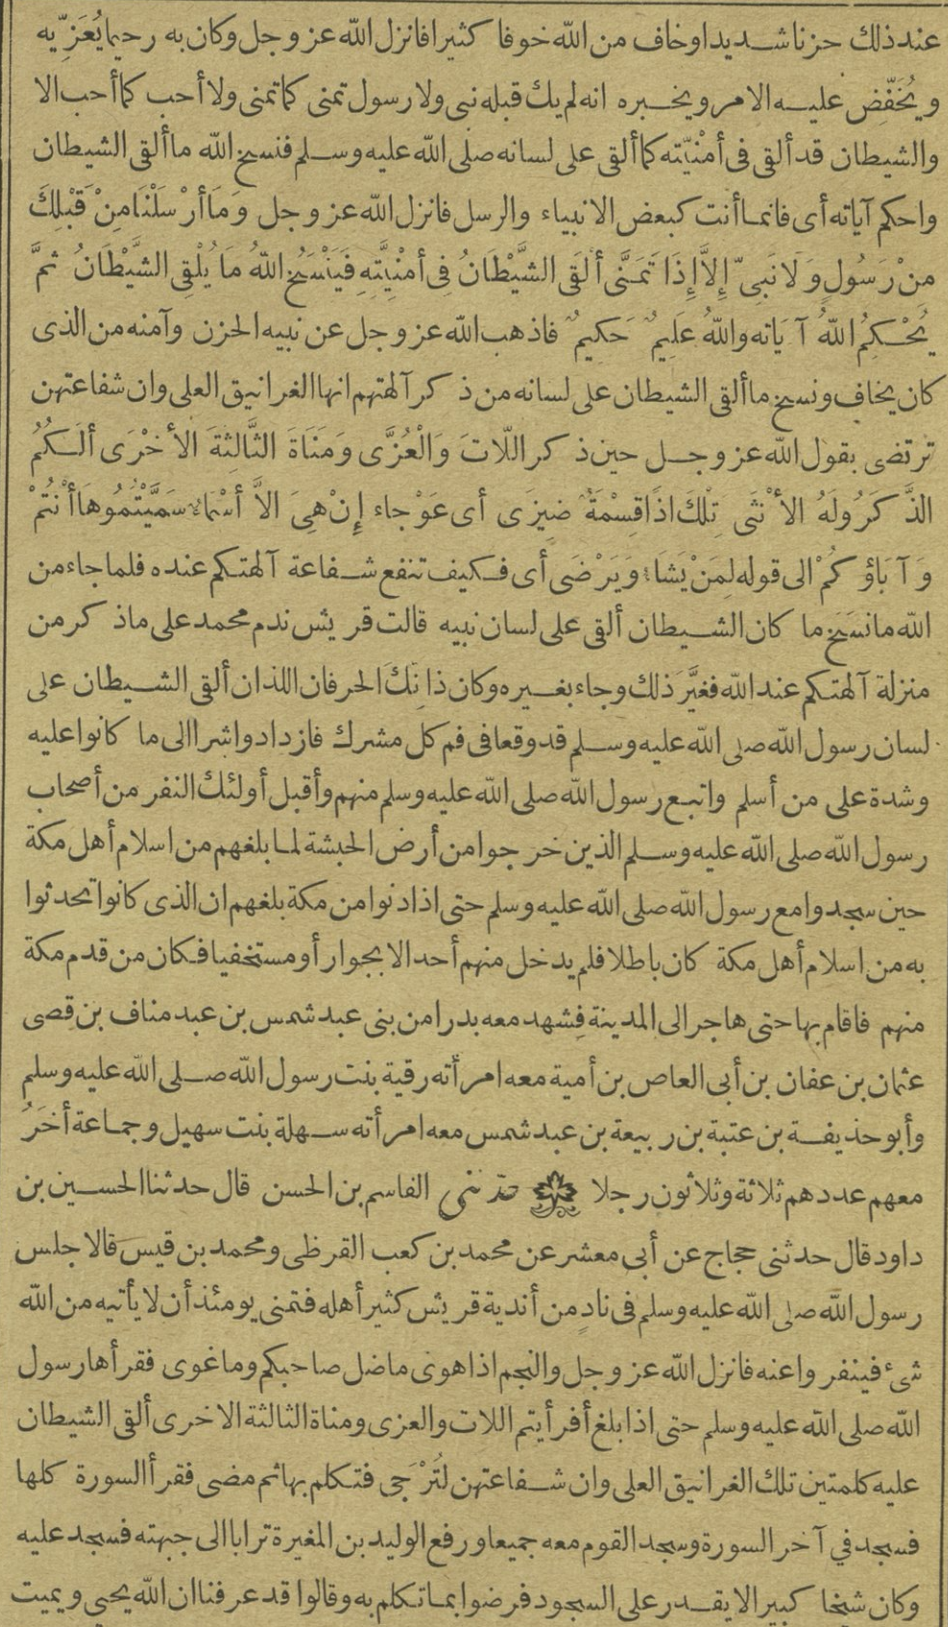 عند ذلك حزنا شديدا وخاف من الله خوفا كثيرا فانزل الله عز وجل وكان به رحيما يُعَزِّيه
ويُخَفِّض عليه الامر ويخبره انه لم يك قبله نبى ولا رسول تمنى كما تمنى ولا أحب كما أحب الا
والشيطان قد ألقى فى أمنْيّته كما ألقى على لسانه صلى الله عليه وسلم فنسخ الله ما ألقى الشيطان
واحكم آياته أى فانما أنت كبعض الانبياء والرسل فانزل الله عز وجل وَمَا أرْسَلْنَا مِنْ قَبْلِكَ
مِنْ رَسُولٍ وَلَا نَبِىّ إِلاَّ إِذَا تَمَنَّى أَلْقَى الشَّيْطَانُ فِى أمنْيِتَّهِ فَيَنْسَخُ اللهُ مَا يُلْقِى الشَّيْطَانُ ثمَّ
يُحْكِمُ اللهُ آيَاته واللهُ عَلِيمٌ حَكِيمٌ فاذهب الله عز وجل عن نبيه الحزن وآمنه من الذى
كان يخاف ونسخ ما ألقى الشيطان على لسانه من ذكر آلهتهم انها الغرانيق العلى وان شفاعتهن
ترتضى بقول الله عز وجل حين ذكر اللّاتَ وَالْعُزَّى وَمَنَاةَ الثَّالِثةَ الأخْرَى ألَكُمُ
الذَّكَرُ وَلَهُ الأنْثَى تِلْكَ اذًا قِسْمَةٌ ضِيزَى أى عَوْجاء إِنْ هِىَ الاَّ أسْمَاءٌ سَمَّيْتُمُوهَا أنْتُمْ
وَآبَاؤكُمْ الى قوله لِمَنْ يَشَاءُ وَيَرْضَى أى فكيف تنفع شفاعة آلهتكم عنده فلما جاء من
الله ما نسَخَ ما كان الشيطان ألقى على لسان نبيه قالت قريش ندم محمد على ما ذكر من
منزلة آلهتكم عند الله فغيَّرَ ذلك وجاء بغيره وكان ذانِكَ الحرفان اللذان ألقى الشيطان على
لسان رسول الله صلى الله عليه وسلم قد وقعا فى فم كل مشرك فازدادوا شرا الى ما كانوا عليه
وشدة على من أسلم واتبع رسول الله صلى الله عليه وسلم منهم وأقبل أولئك النفر من أصحاب
رسول الله صلى الله عليه وسلم الذين خرجوا من أرض الحبشة لما بلغهم من اسلام أهل مكة
حين سجدوا مع رسول الله صلى الله عليه وسلم حتى اذا دنوا من مكة بلغهم ان الذى كانوا تحدثوا
به من اسلام أهل مكة كان باطلا فلم يدخل منهم أحد الا بجوار أو مستخفيا فكان من قدم مكة
منهم فاقام بها حتى هاجر الى المدينة فشهد معه بدرا من بنى عبد شمس بن عبد مناف بن قصى
عثمان بن عفان بن أبى العاص بن أمية معه امرأته رقية بنت رسول الله صلى الله عليه وسلم
وأبو حذيفة بن عتبة بن ربيعة بن عبد شمس معه امرأته سهلة بنت سهيل وجماعة أُخَرُ
معهم عددهم ثلاثة وثلاثون رجلا حدثنى القاسم بن الحسن قال حدثنا الحسين بن
داود قال حدثنى حجاج عن أبى معشر عن محمد بن كعب القرظى ومحمد بن قيس قالا جلس
رسول الله صلى الله عليه وسلم فى نادٍ من أندية قريش كثير أهله فتمنى يومئذ أن لا يأتيه من الله
شئ فينفروا عنه فانزل الله عز وجل والنجم اذا هوى ما ضل صاحبكم وما غوى فقرأها رسول
الله صلى الله عليه وسلم حتى اذا بلغ أفرأيتم اللات والعزى ومناة الثالثة الاخرى ألقى الشيطان
عليه كلمتين تلك الغرانيق العلى وان شفاعتهن لتُرْجَى فتكلم بها ثم مضى فقرأ السورة كلها
فسجد في آخر السورة وسجد القوم معه جميعا ورفع الوليد بن المغيرة ترابا الى جبهته فسجد عليه
وكان شيخا كبيرا لا يقدر على السجود فرضوا بما تكلم به وقالوا قد عرفنا ان الله يحيى ويميت